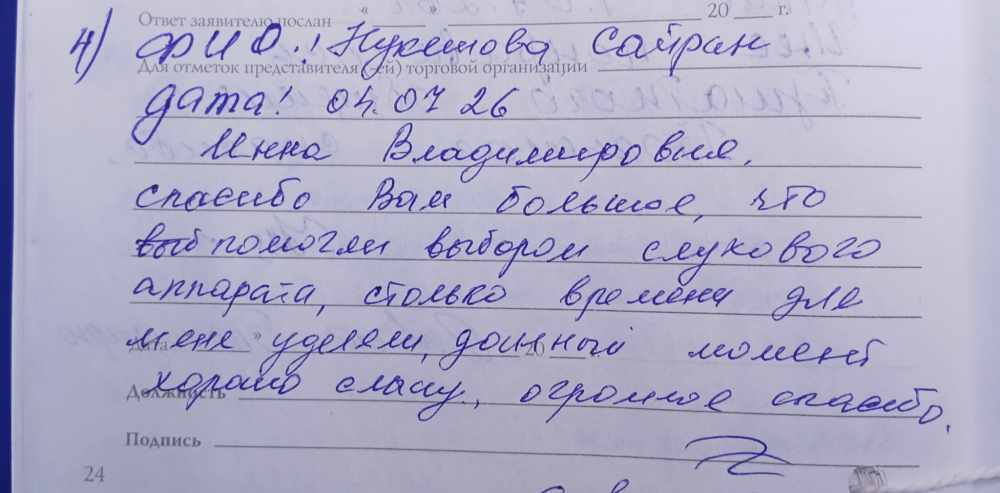 Ответ заявителю послан « » 20 г.
4) ФИО.! Нукешова Сайран.
Для отметок представителя (ей) торговой организации
Дата! 04.07 26
Инна Владимировня,
спасибо Вам большое, что
выб помогли выбором слухового
аппарата, столько времени для
Дата » 20
мене уделяли, данный момент
хорошо слашу, огромное спасибо.
Должность
Подпись
24